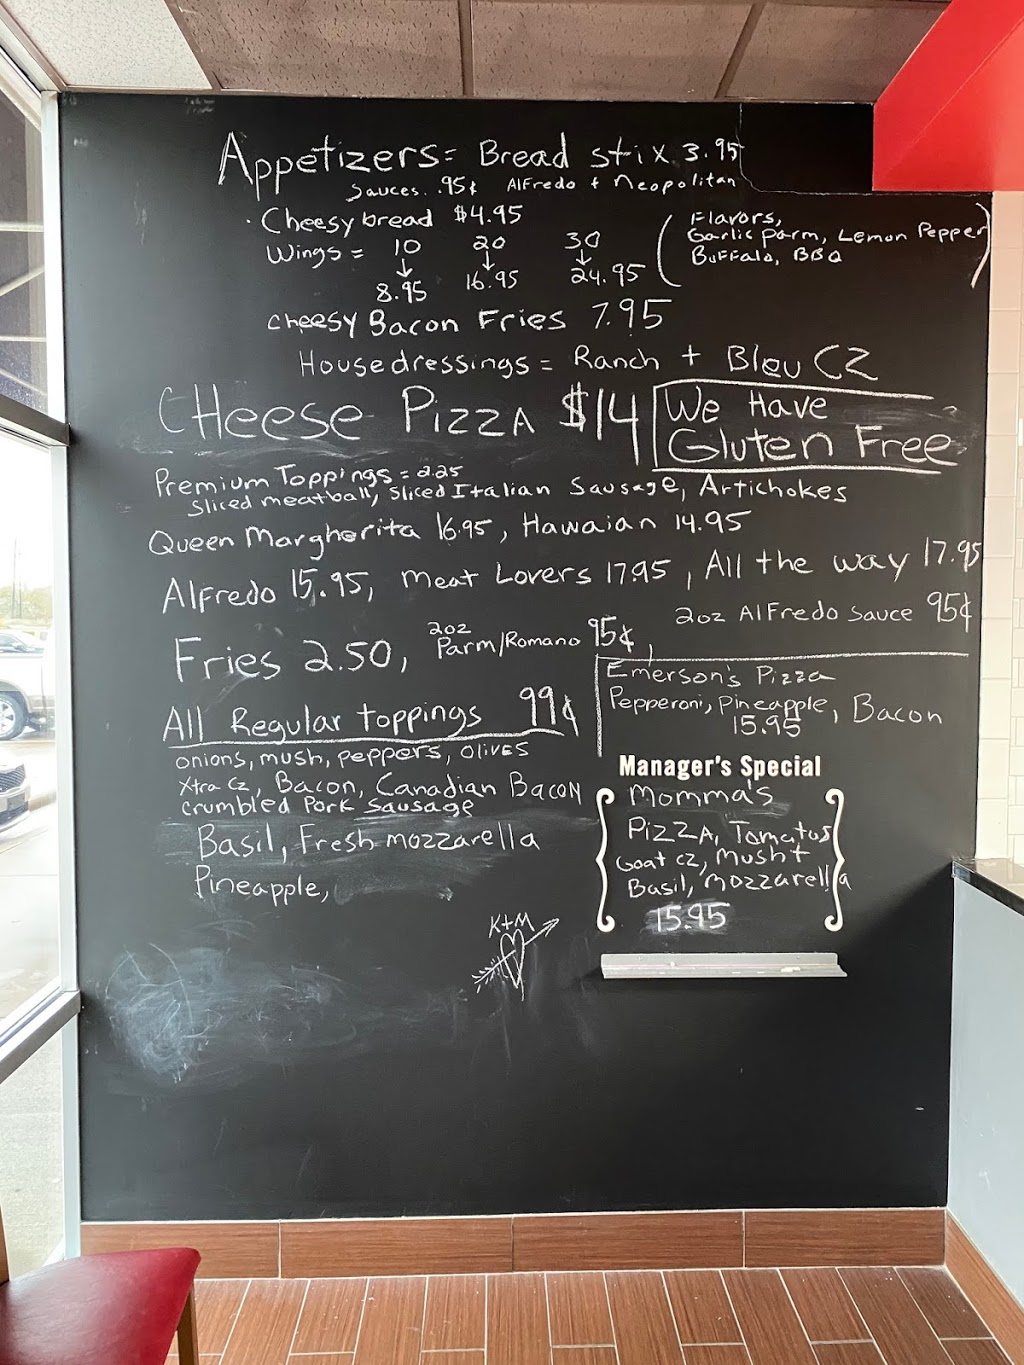 Appetizers = Bread stix 3.95
Sauces .95¢ Alfredo + Neopolitan
· Cheesy bread $4.95
Wings = 10 20 30
8.95 16.95 24.95
(Flavors,
Garlic Parm, Lemon Pepper
Buffalo, BBQ)
cheesy Bacon Fries 7.95
House dressings = Ranch + Bleu CZ
CHeese Pizza $14
We Have
Gluten Free
Premium Toppings = 2.25
Sliced meatball, Sliced Italian Sausage, Artichokes
Queen Margherita 16.95, Hawaian 14.95
Alfredo 15.95, Meat Lovers 17.95, All the way 17.95
Fries 2.50, 2oz Parm/Romano 95¢,
2oz Alfredo Sauce 95¢
Emerson's Pizza
Pepperoni, Pineapple, Bacon
15.95
All Regular toppings 99¢
onions, mush, peppers, olives
Xtra Cz, Bacon, Canadian Bacon
crumbled Pork Sausage
Basil, Fresh mozzarella
Pineapple,
Manager's Special
Momma's
Pizza, Tomatos
Goat cz, Mush +
Basil, Mozzarella
15.95
K+M